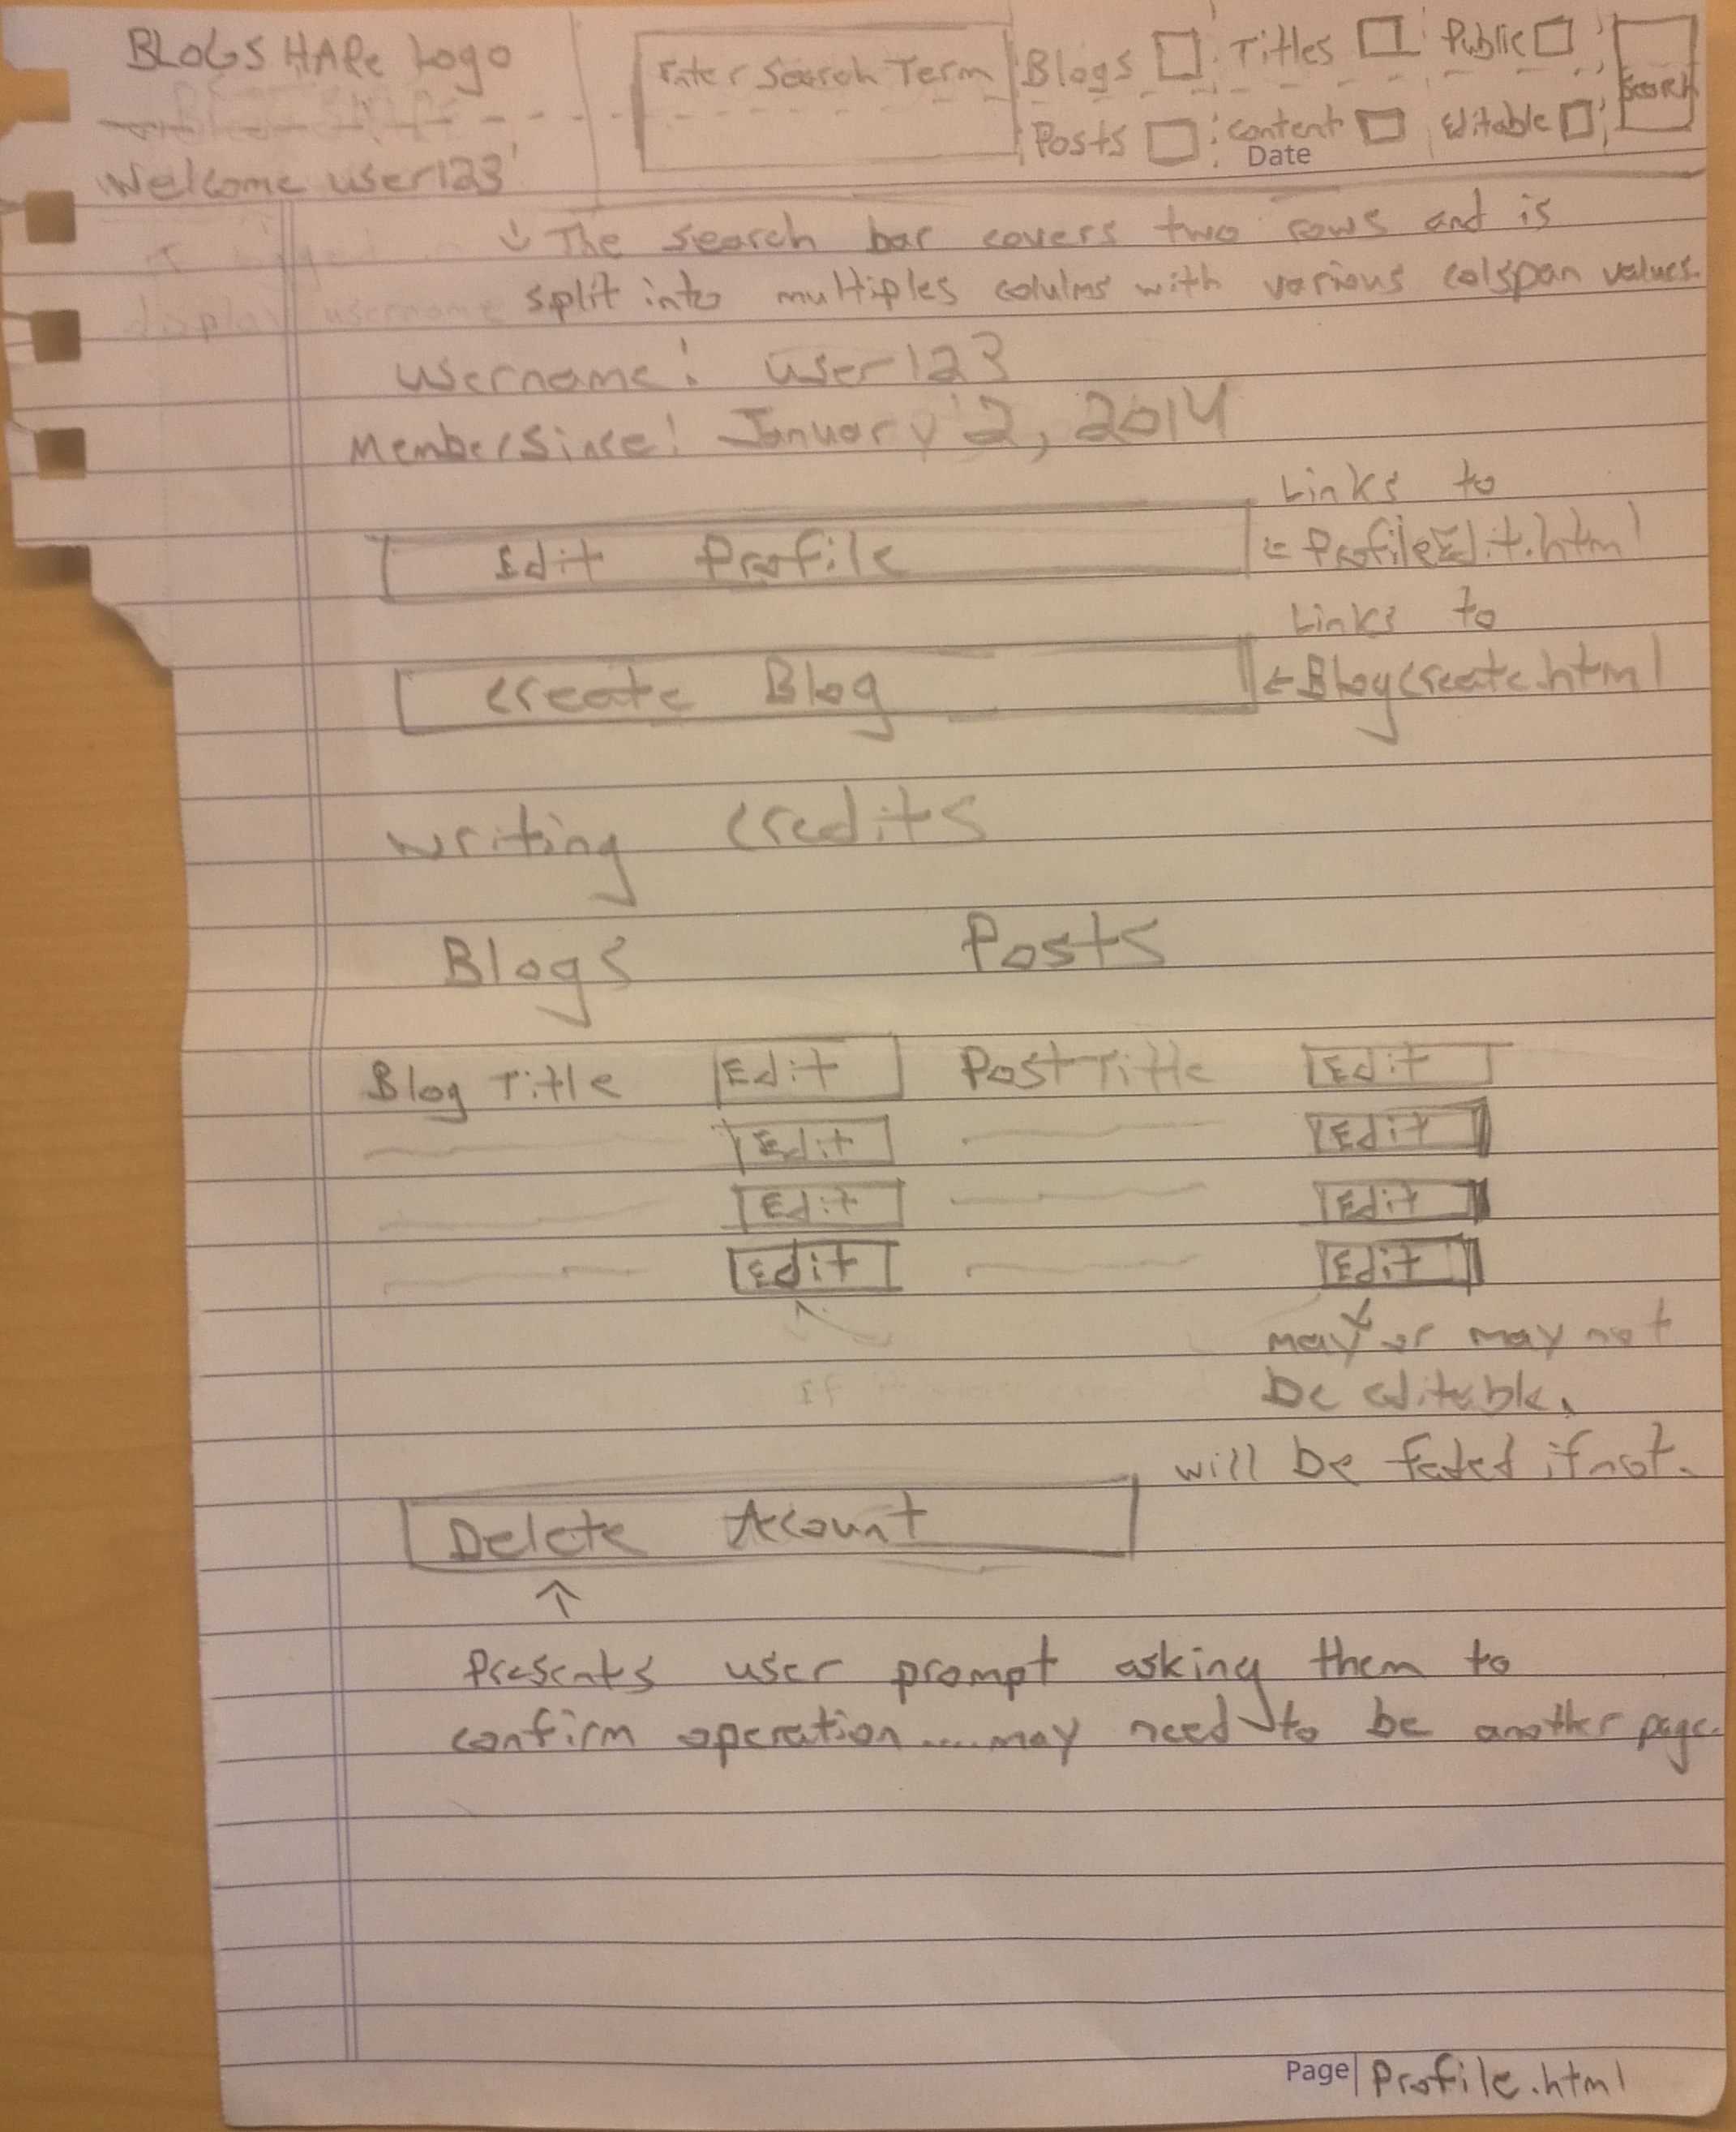 BLOGSHARe Logo
Enter Search Term Blogs Titles Public Search
Posts Content Editable
Date
Welcome user123
The search bar covers two rows and is
split into multiples colulms with various colspan values.
display username
username: user123
Member Since: January 2, 2014
Links to
Edit Profile ProfileEdit.html
Links to
Create Blog BlogCreate.html
Writing Credits
Blogs Posts
Blog Title Edit Post Title Edit
Edit Edit
Edit Edit
Edit Edit
may or may not
If
be editable.
will be faded if not.
Delete Acount
Presents user prompt asking them to
confirm operation....may need to be another page.
Page Profile.html